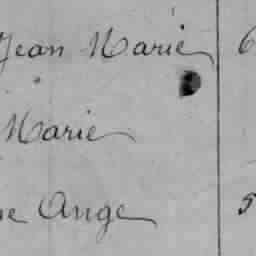 Jean Marie 6
Marie
Ange 5